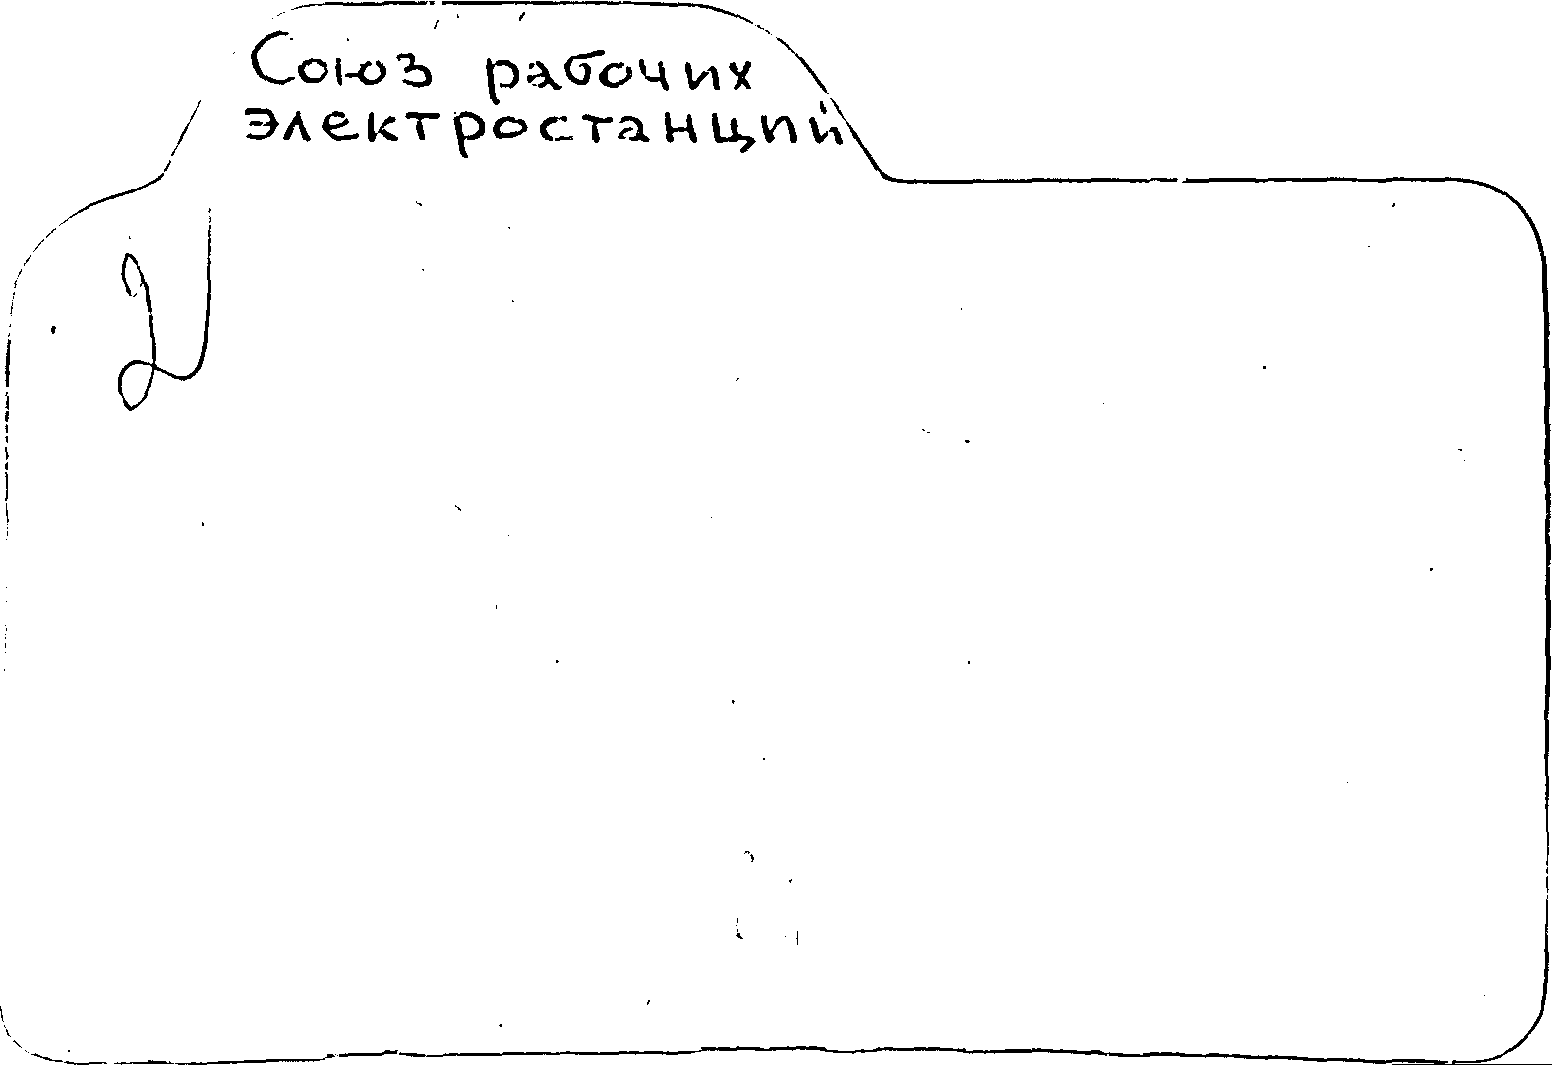 Союз рабочих
электростанций
2